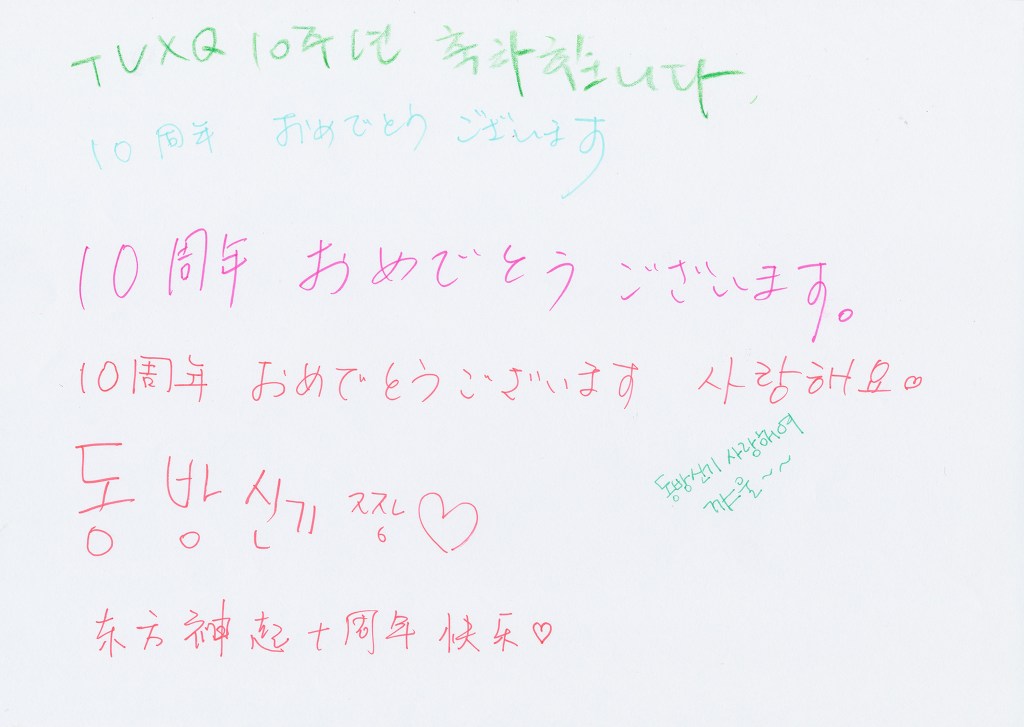 TVXQ 10주년 축하합니다.
10周年 おめでとう ございます
10周年 おめでとう ございます。
10周年 おめでとうございます 사랑해요♡
동방신기 사랑해여
꺄울~~
동방신기 짱♡
东方神起十周年快乐♡